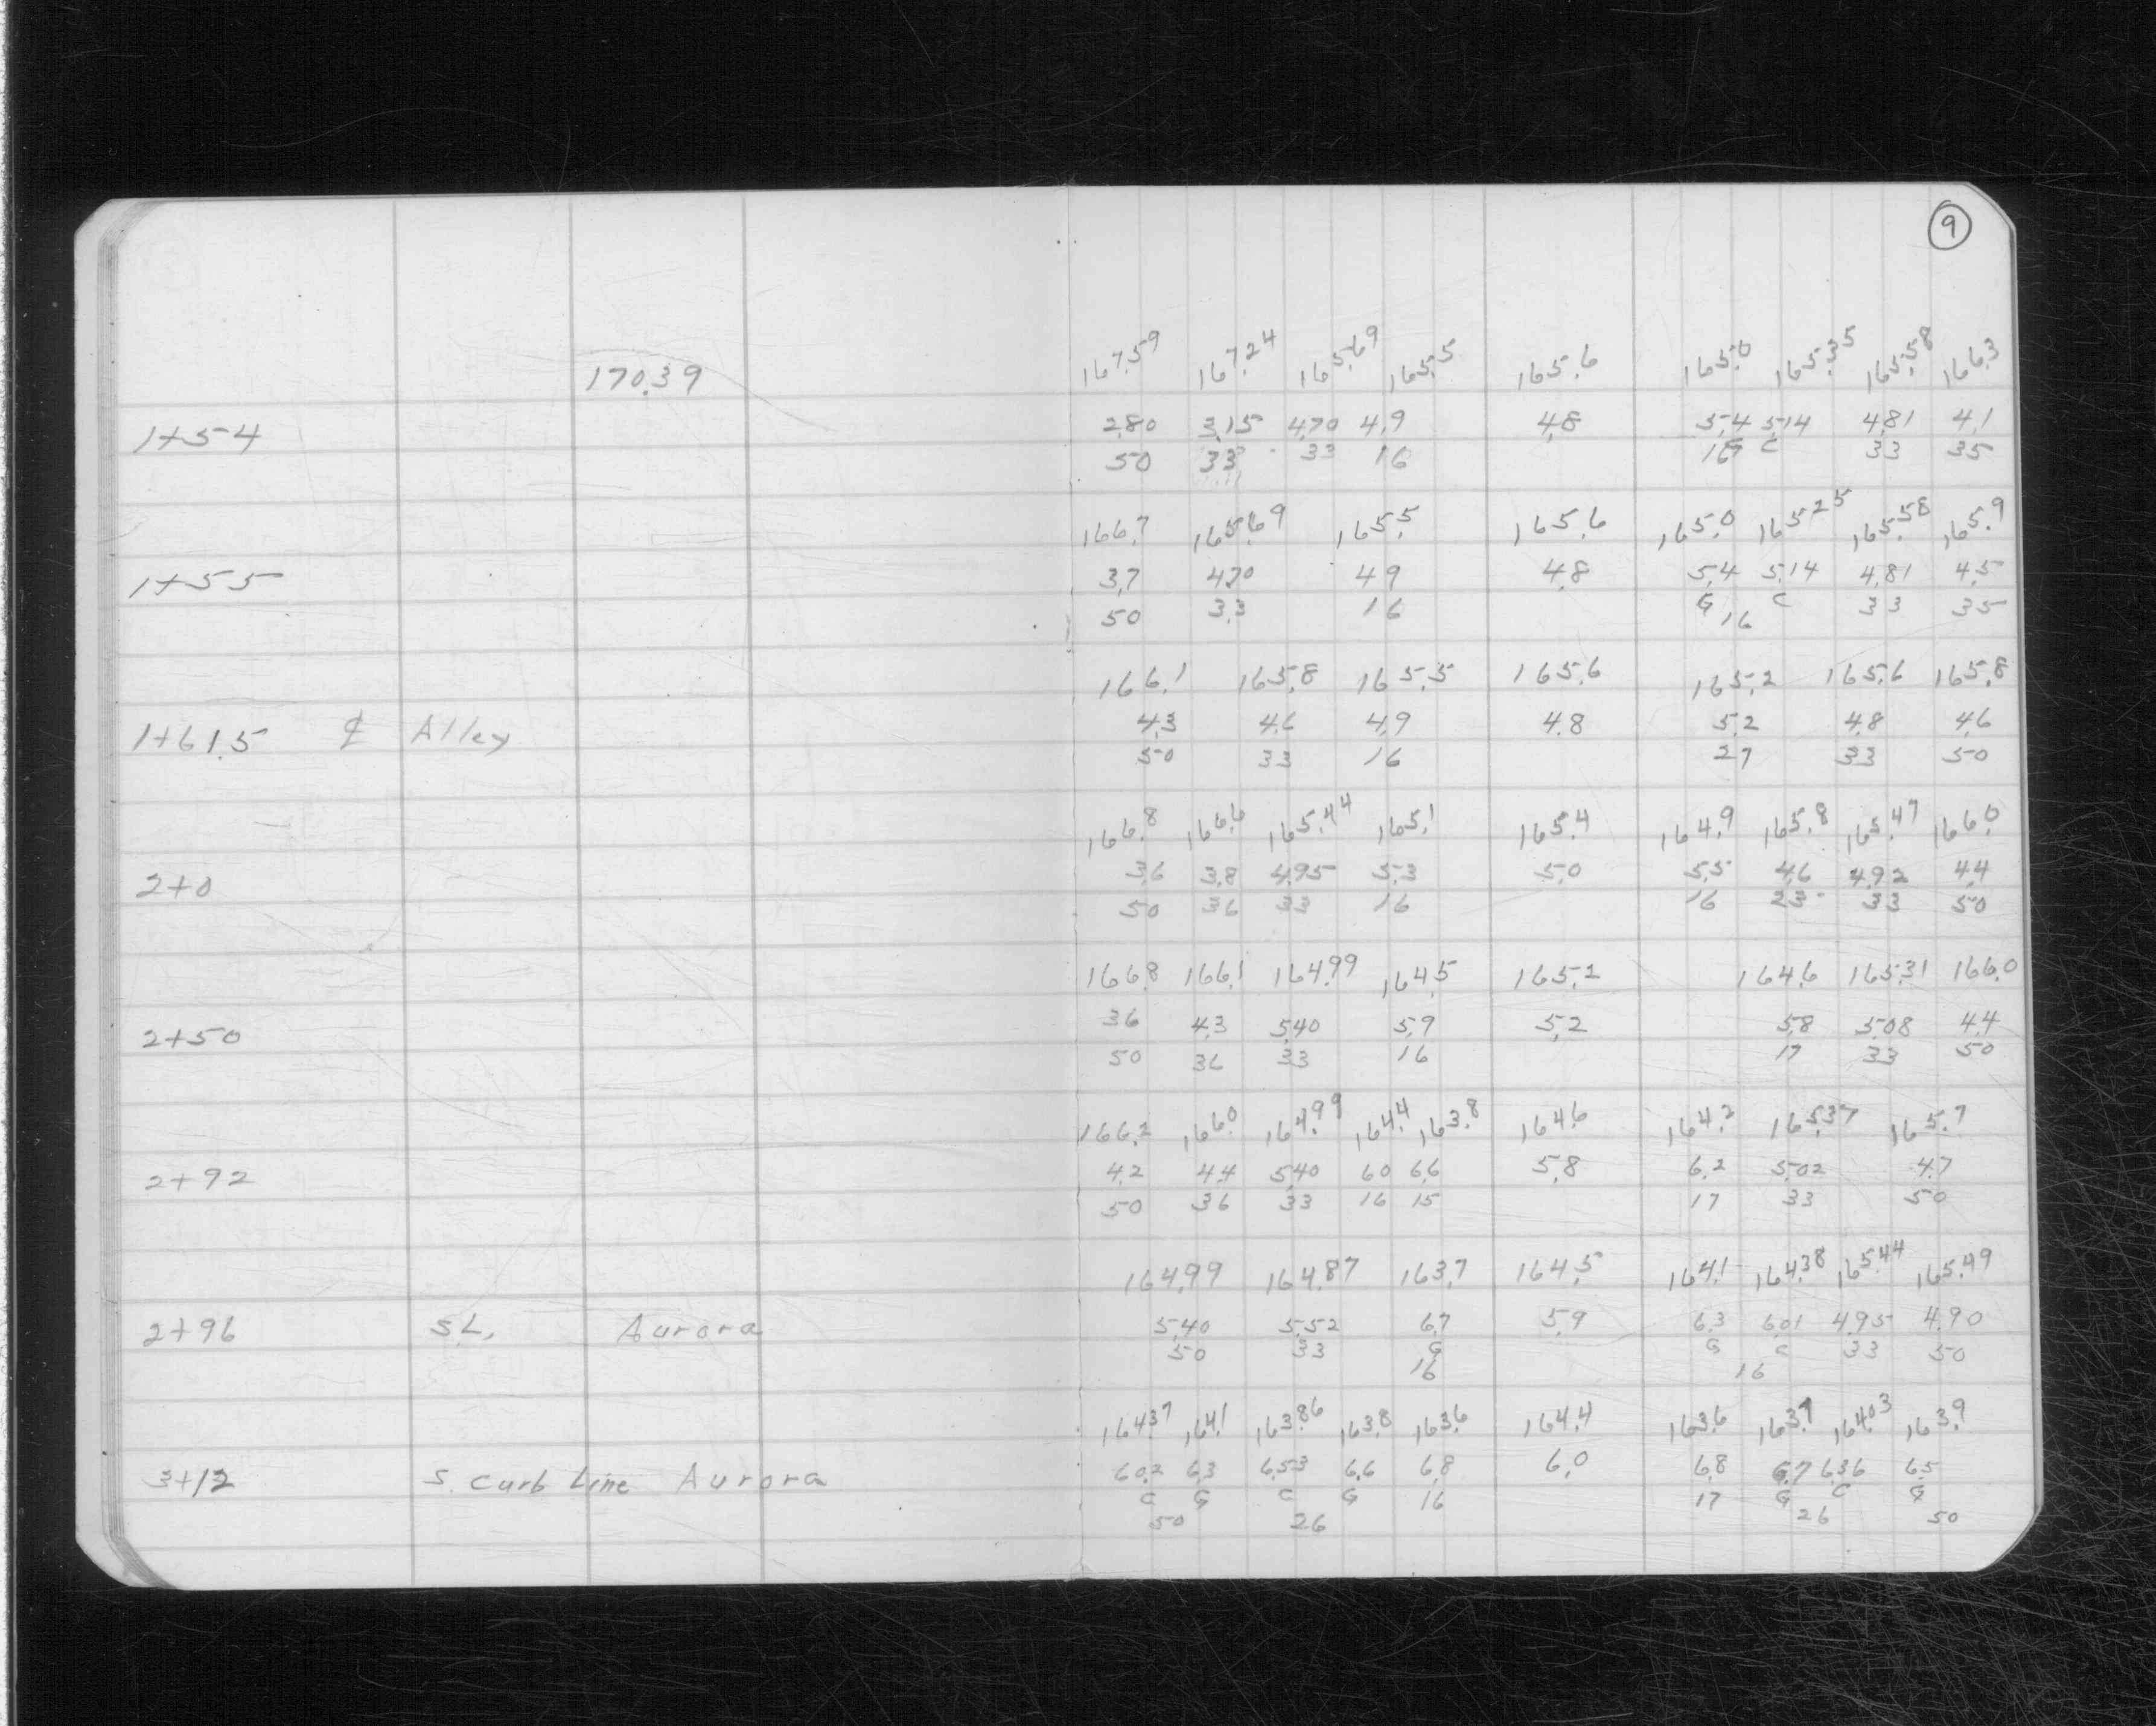 9
170.39 167.59 167.24 165.69 165.5 165.6 165.0 165.35 165.58 166.3
1+54 2.80 3.15 4.70 4.9 4.8 5.4 5.14 4.81 4.1
50 33 33 16 16 G C 33 35
166.7 165.69 165.5 165.6 165.0 165.25 165.58 165.9
1+55 3.7 4.70 4.9 4.8 5.4 5.14 4.81 4.5
50 33 16 G C 33 35
16
166.1 165.8 165.5 165.6 165.2 165.6 165.8
1+61.5 ₵ Alley 4.3 4.6 4.9 4.8 5.2 4.8 4.6
50 33 16 27 33 50
166.8 166.6 165.44 165.1 165.4 164.9 165.8 165.47 166.0
2+0 3.6 3.8 4.95 5.3 5.0 5.5 4.6 4.92 4.4
50 36 33 16 16 23 33 50
166.8 166.1 164.99 164.5 165.2 164.6 165.31 166.0
2+50 3.6 4.3 5.40 5.9 5.2 5.8 5.08 4.4
50 36 33 16 17 33 50
166.2 166.0 164.99 164.4 163.8 164.6 164.2 165.37 165.7
2+92 4.2 4.4 5.40 6.0 6.6 5.8 6.2 5.02 4.7
50 36 33 16 15 17 33 50
164.99 164.87 163.7 164.5 164.1 164.38 165.44 165.49
2+96 S.L. Aurora 5.40 5.52 6.7 5.9 6.3 6.01 4.95 4.90
50 33 G G C 33 50
16 16
164.37 164.1 163.86 163.8 163.6 164.4 163.6 163.7 164.03 163.9
3+12 S. Curb Line Aurora 6.02 6.3 6.53 6.6 6.8 6.0 6.8 6.7 6.36 6.5
C G C G 16 17 G C G
50 26 26 50